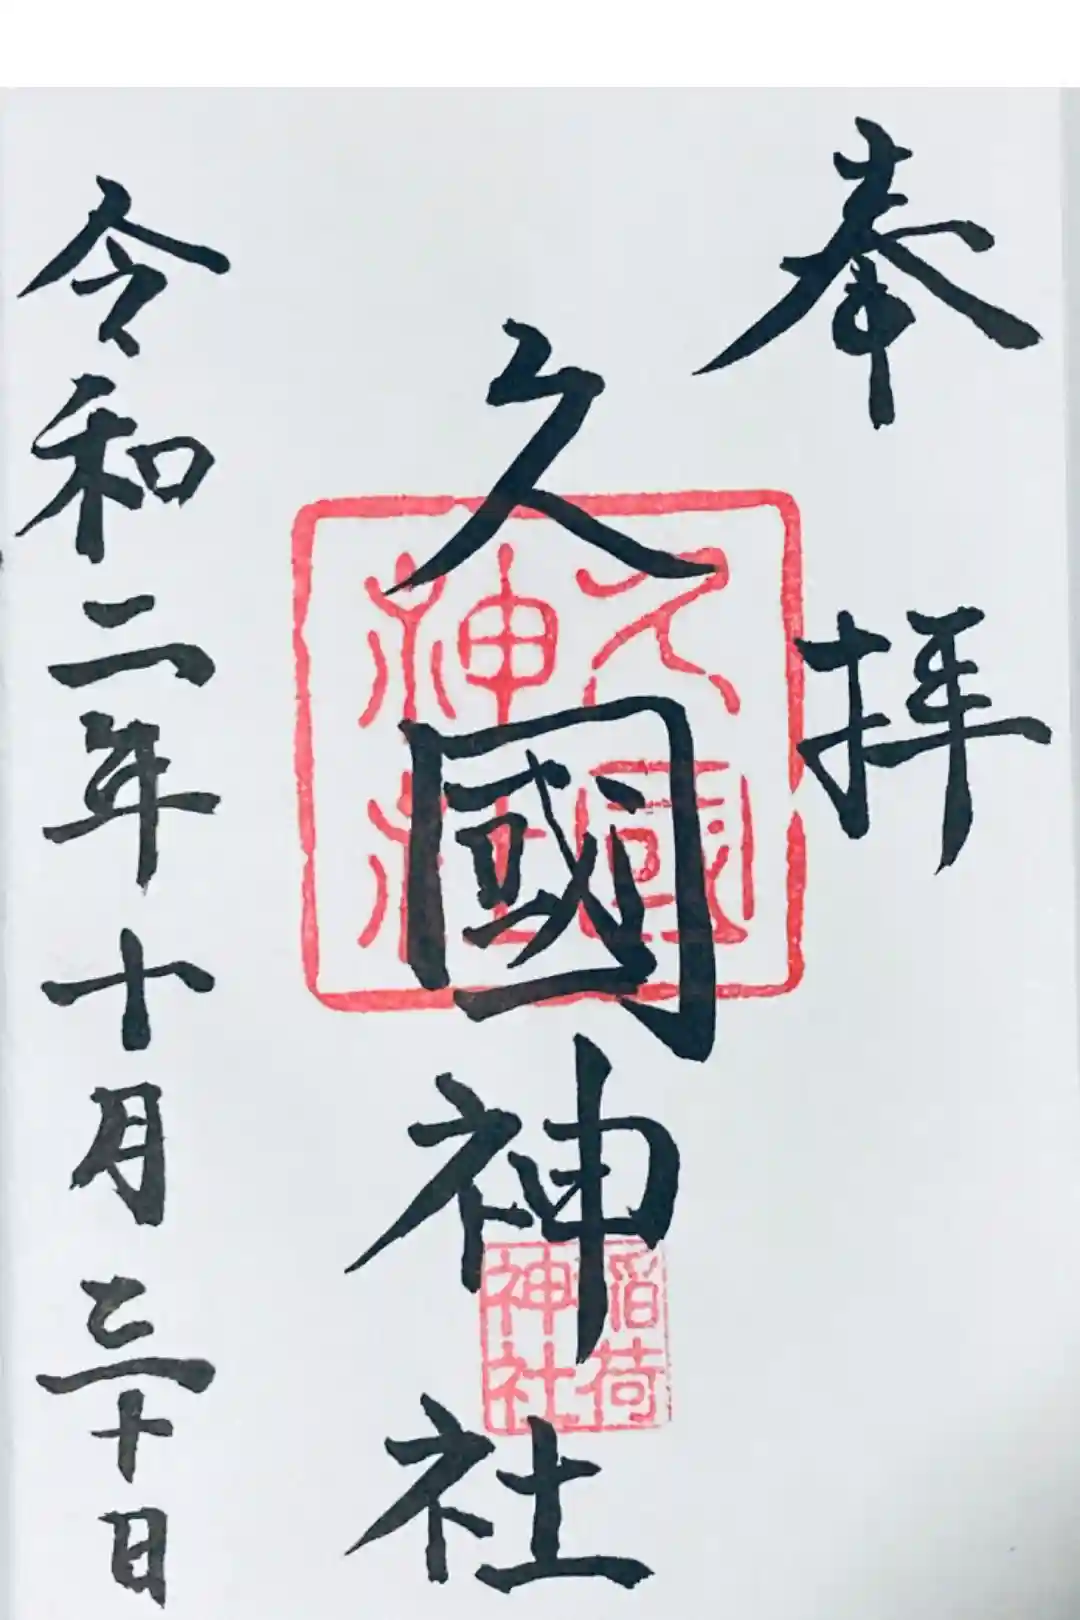 奉拝
久國神社
久國
神社
稲荷
神社
令和二年十月三十日